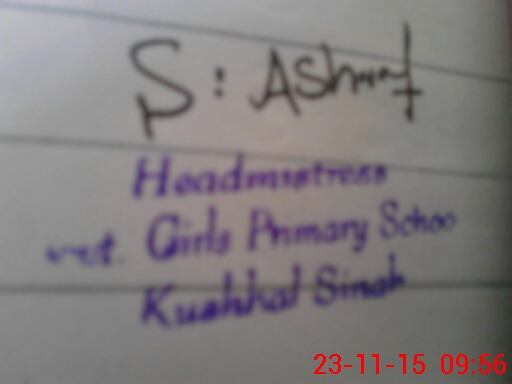 S: Ashraf
Headmistress
Girls Primary Schoo
Kushhal Singh
23-11-15 09:56